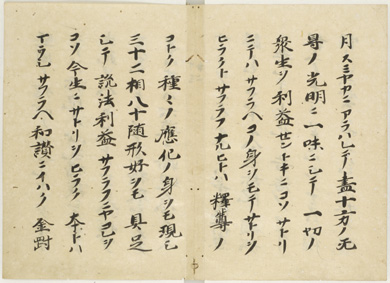 月スミヤカニアラハレテ盡十方ノ无
㝵ノ光明ニ一味ニシテ一切ノ
衆生ヲ利益セントキニコソサトリ
ニテハサフラヘコノ身ヲモテサトリヲ
ヒラクトサフラフナルヒトハ釋尊ノ
コトク種々ノ應化ノ身ヲモ現シ
三十二相八十随形好ヲモ具足
シテ説法利益サフラフニヤコレヲ
コソ今生ニサトリヲヒラク本トハ
マウシサフラヘ和讃ニイハク金剛